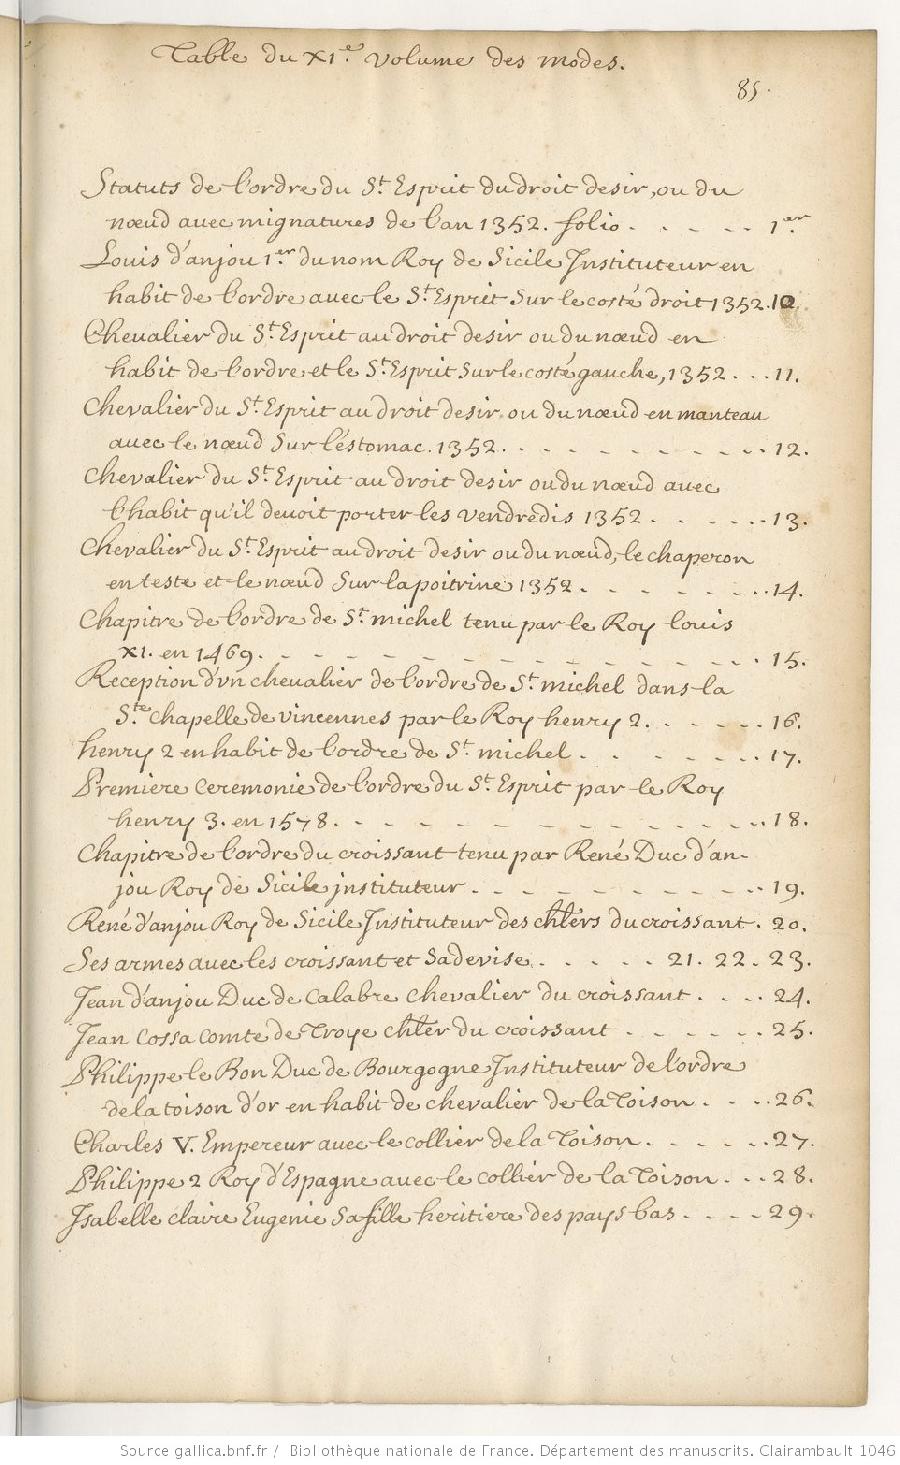 Table du XIe. Volume des modes.
85.
Statuts de l'ordre du St. Esprit du droit desir, ou du
nœud avec mignatures de l'an 1352. folio. - - - - - 1er.
Louis d'anjou 1er. du nom Roy de Sicile Instituteur en
habit de l'ordre avec le St. Esprit sur le costé droit 1352. 10
Chevalier du St. Esprit au droit desir ou du nœud en
habit de l'ordre et le St. Esprit sur le costé gauche, 1352 . . . 11.
Chevalier du St. Esprit au droit desir, ou du nœud en manteau
avec le nœud sur l'éstomac. 1352. . - - - - - - - . . 12.
Chevalier du St. Esprit au droit desir ou du nœud avec
l'habit qu'il devoit porter les vendredis 1352 . - - - . . 13.
Chevalier du St. Esprit au droit desir ou du nœud, le chaperon
en teste et le nœud sur la poitrine 1352. - - - - - . . 14.
Chapitre de l'ordre de St. michel tenu par le Roy louis
XI. en 1469. - - - - - - - - - - - - . . 15.
Reception d'vn chevalier de l'ordre de St. michel dans la
Ste. chapelle de vincennes par le Roy henry 2. - - - - . . 16.
henry 2 en habit de l'ordre de St. michel . - - - - - . . 17.
Premiere ceremonie de l'ordre du St. Esprit par le Roy
henry 3. en 1578. - - - - - - - - - - - . . 18.
Chapitre de l'ordre du croissant tenu par René Duc d'an-
jou Roy de Sicile jnstituteur. - - - - - - - - . . 19.
René d'anjou Roy de Sicile Instituteur des chlérs du croissant . 20.
Ses armes avec les croissant et sa devise. - - - - . 21. 22. 23.
Jean d'anjou Duc de Calabre chevalier du croissant . - . . 24.
Jean cossa comte de Troye chler du croissant - - - - . . 25.
Philippe le Bon Duc de Bourgogne Instituteur de l'ordre
de la toison d'or en habit de chevalier de la Toison . - . . 26.
Charles V. Empereur avec le collier de la Toison . - - - . . 27.
Philippe 2 Roy d'Espagne avec le collier de la Toison . - . . 28.
Isabelle claire Eugenie sa fille heritiere des pays bas . - - . . 29.
Source gallica.bnf.fr / Bibliothèque nationale de France. Département des manuscrits. Clairambault 1046